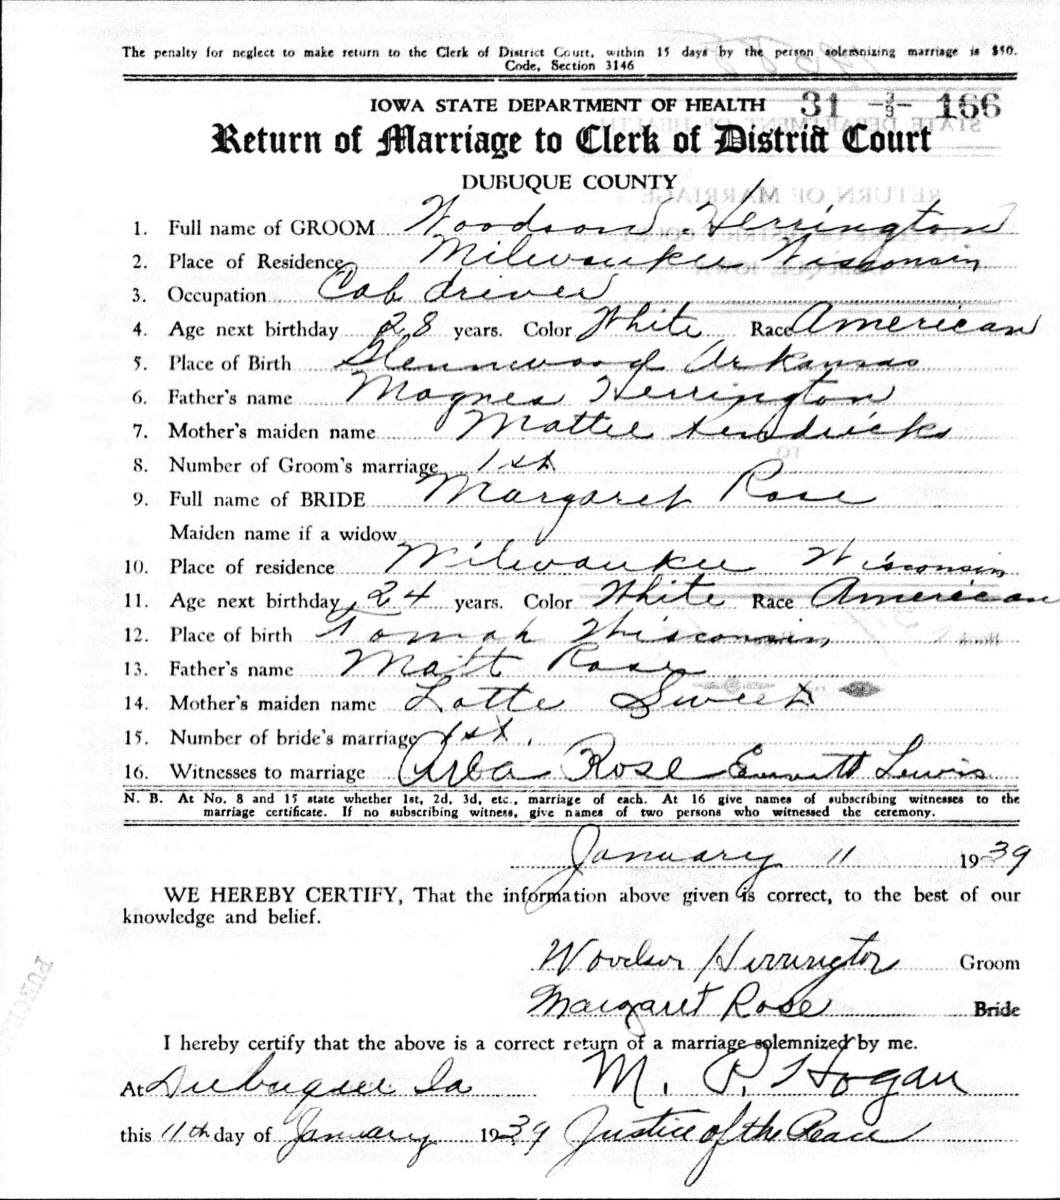 The penalty for neglect to make return to the Clerk of District Court, within 15 days by the person solemnizing marriage is $50.
Code, Section 3146
IOWA STATE DEPARTMENT OF HEALTH 31 - 3/9 - 166
Return of Marriage to Clerk of District Court
DUBUQUE COUNTY
1. Full name of GROOM Woodson Herrington
2. Place of Residence Milwaukee Wisconsin
3. Occupation Cab driver
4. Age next birthday 28 years. Color White Race American
5. Place of Birth Glennwood Arkansas
6. Father's name Magnes Herrington
7. Mother's maiden name Mattie Kendricks
8. Number of Groom's marriage 1st
9. Full name of BRIDE Margaret Rose
Maiden name if a widow
10. Place of residence Milwaukee Wisconsin
11. Age next birthday 24 years. Color White Race American
12. Place of birth Tomah Wisconsin
13. Father's name Matt Rose
14. Mother's maiden name Lotte Sweet
15. Number of bride's marriage 1st.
16. Witnesses to marriage Arba Rose Emmett Lewis
N. B. At No. 8 and 15 state whether 1st, 2d, 3d, etc., marriage of each. At 16 give names of subscribing witnesses to the
marriage certificate. If no subscribing witness, give names of two persons who witnessed the ceremony.
January 11 1939
WE HEREBY CERTIFY, That the information above given is correct, to the best of our
knowledge and belief.
Woodson Herrington Groom
Margaret Rose Bride
I hereby certify that the above is a correct return of a marriage solemnized by me.
At Dubuque Ia M. P. Hogan
this 11th day of January 1939 Justice of the Peace